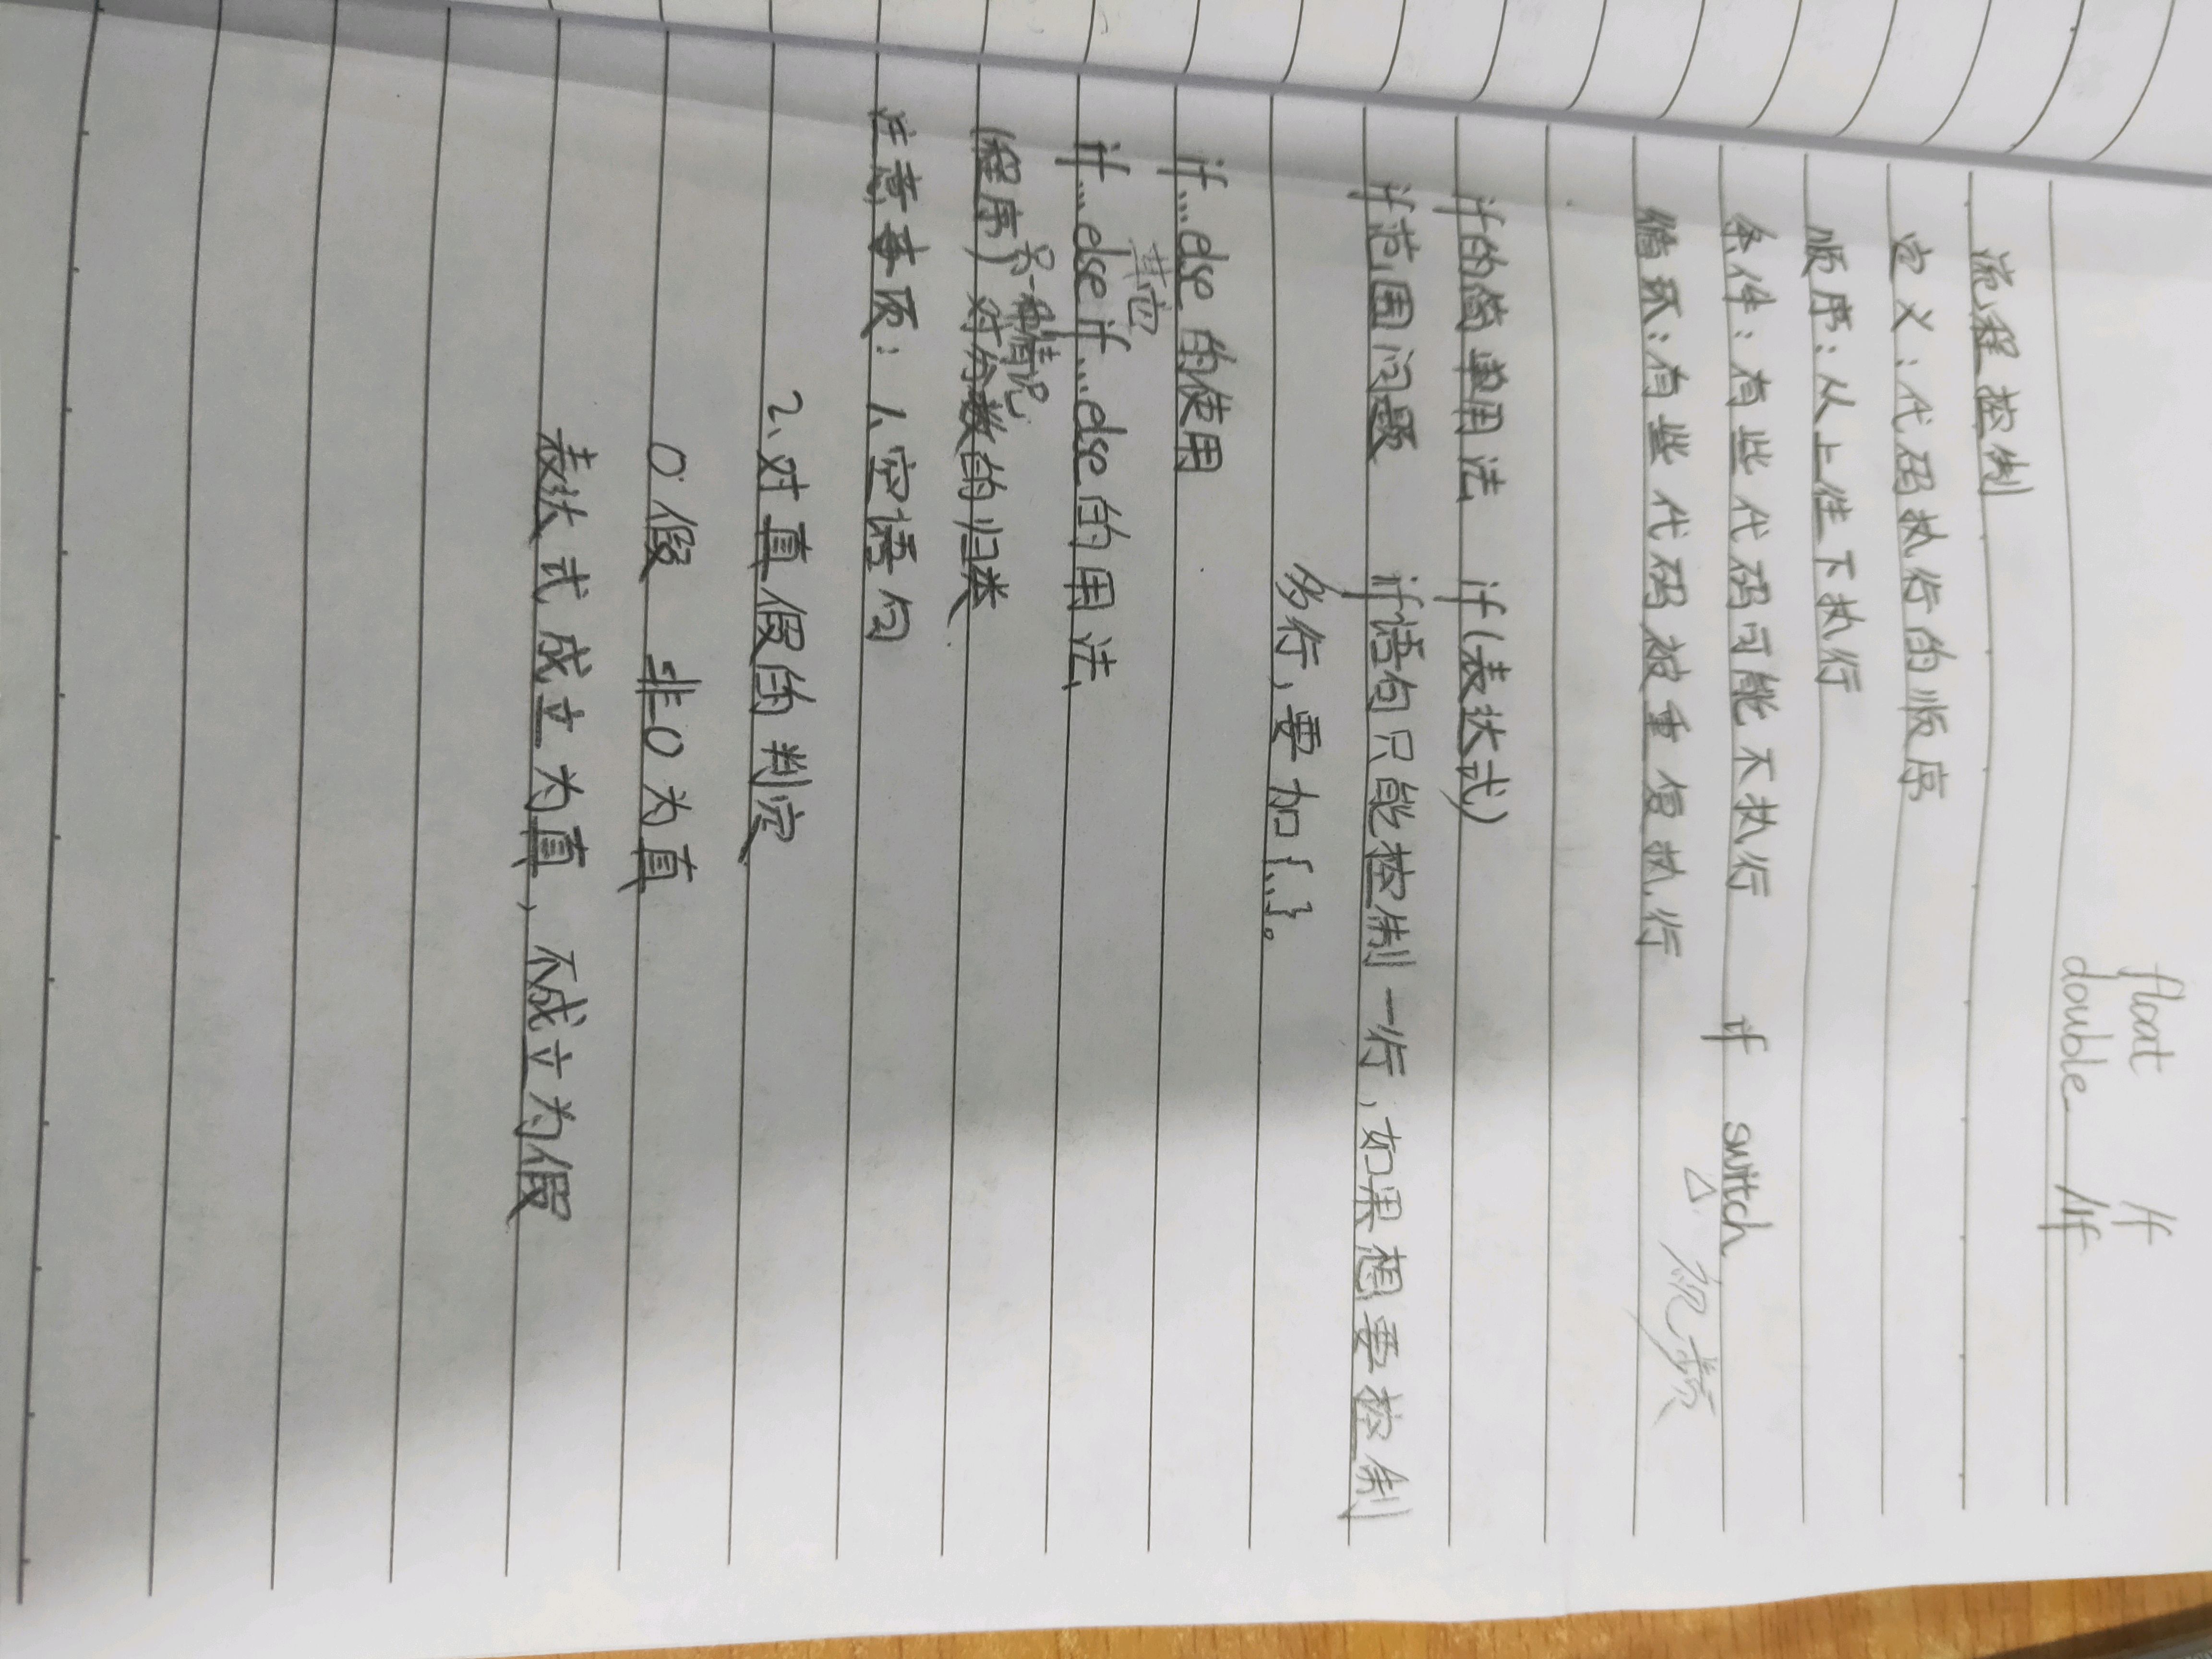 float lf
double llf
流程控制
定义：代码执行的顺序
顺序：从上往下执行
条件：有些代码可能不执行 if switch
△ 视频
循环：有些代码被重复执行
if的简单用法 if(表达式)
if范围问题 if语句只能控制一行，如果想要控制
多行，要加{..}。
if...else的使用
其它
if...else if...else的用法
另一种情况
(程序) 对分数的归类
注意事项：1、空语句
2、对真假的判定
0假 非0为真
表达式成立为真，不成立为假